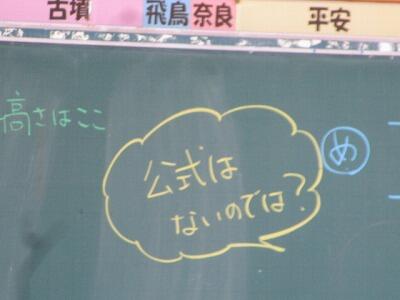 古墳 飛鳥 奈良 平安
高さはここ
公式は
ないのでは?
め